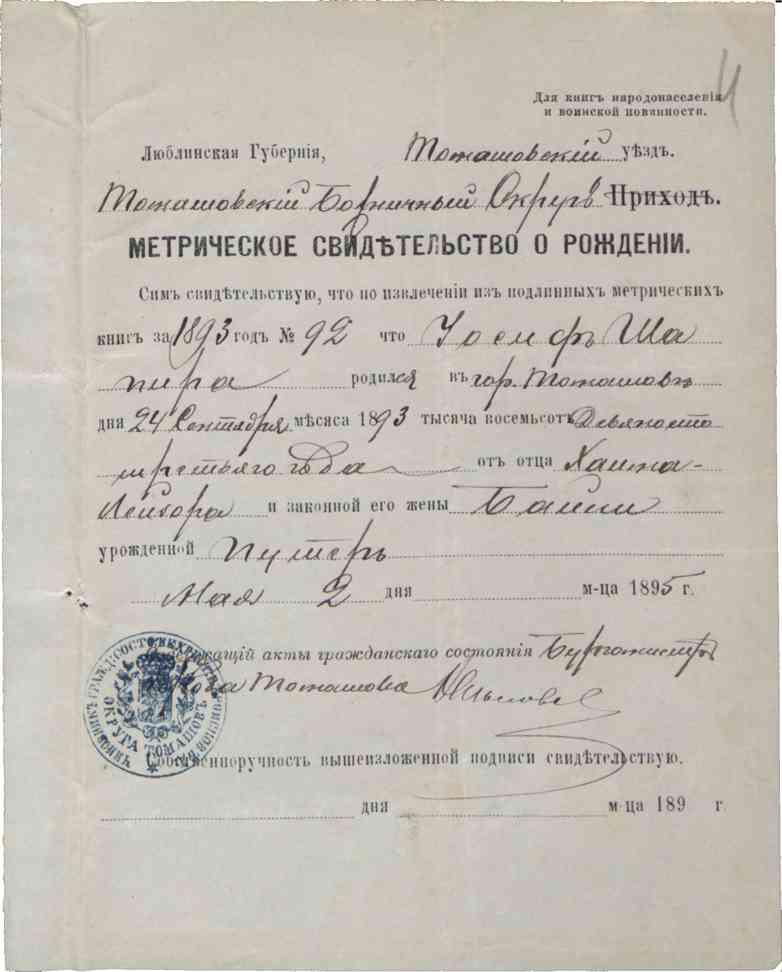 4
Для книгъ народонаселенія
и воинской повинности.
Люблинская Губернія, Томашовскій уѣздъ.
Томашовскій Божничный Округъ Приходъ.
МЕТРИЧЕСКОЕ СВИДѢТЕЛЬСТВО О РОЖДЕНІИ.
Симъ свидѣтельствую, что по извлеченіи изъ подлинныхъ метрическихъ
книгъ за 1893 годъ № 92 что Іосифъ Ша
пира родился въ гор. Томашовѣ
дня 24 Сентября мѣсяса 1893 тысяча восемьсотъ Девяносто
третьяго года отъ отца Хаима-
Лейзора и законной его жены Байли
урожденной Путеръ
Мая 2 дня м-ца 1895 г.
акты гражданскаго состоянія Бургомистръ
города Томашова
ОКРУГА ТОМАШОВЪ
Собственноручность вышеизложенной подписи свидѣтельствую.
дня м-ца 189 г.